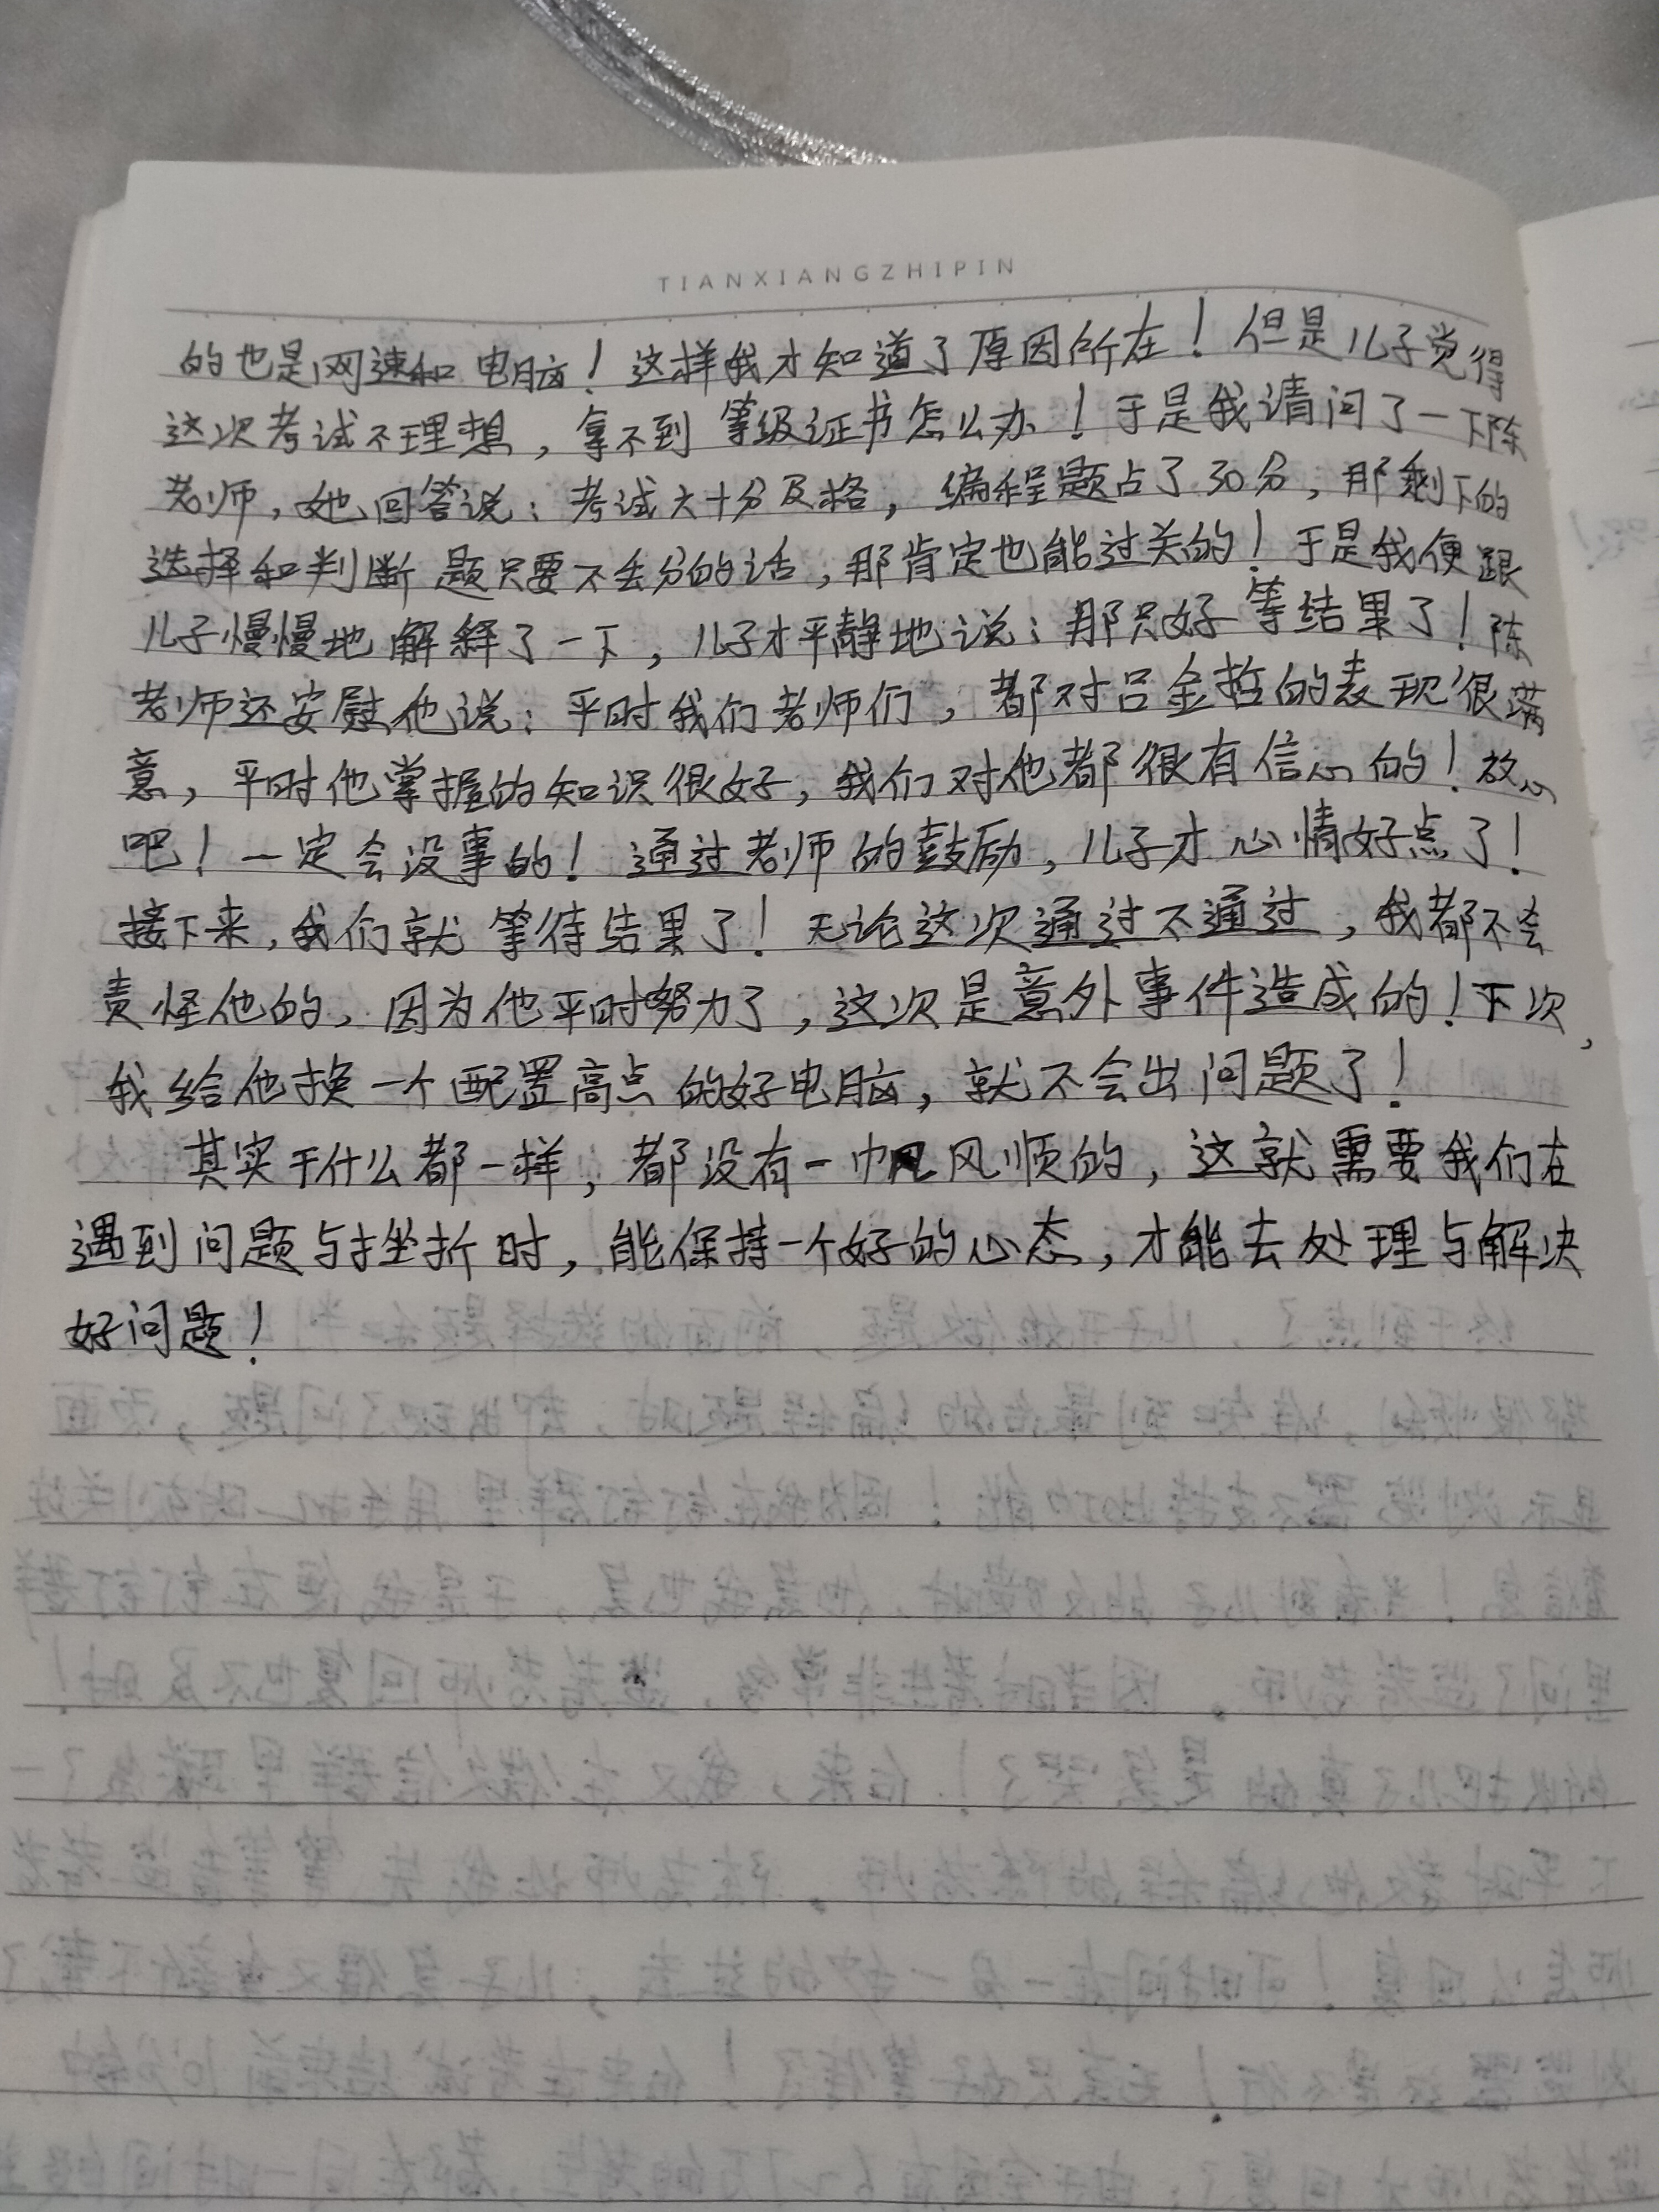 TIANXIANGZHIPIN
的也是网速和电脑！这样我才知道了原因所在！但是儿子觉得
这次考试不理想，拿不到等级证书怎么办！于是我请问了一下陈
老师，她回答说：考试六十分及格，编程题占了30分，那剩下的
选择和判断题只要不丢分的话，那肯定也能过关的！于是我便跟
儿子慢慢地解释了一下，儿子才平静地说：那只好等结果了！陈
老师还安慰他说：平时我们老师们，都对吕金哲的表现很满
意，平时他掌握的知识很好，我们对他都很有信心的！放心
吧！一定会没事的！通过老师的鼓励，儿子才心情好点了！
接下来，我们就等待结果了！无论这次通过不通过，我都不会
责怪他的，因为他平时努力了，这次是意外事件造成的！下次，
我给他换一个配置高点的好电脑，就不会出问题了！
其实干什么都一样，都没有一帆风顺的，这就需要我们在
遇到问题与挫折时，能保持一个好的心态，才能去处理与解决
好问题！